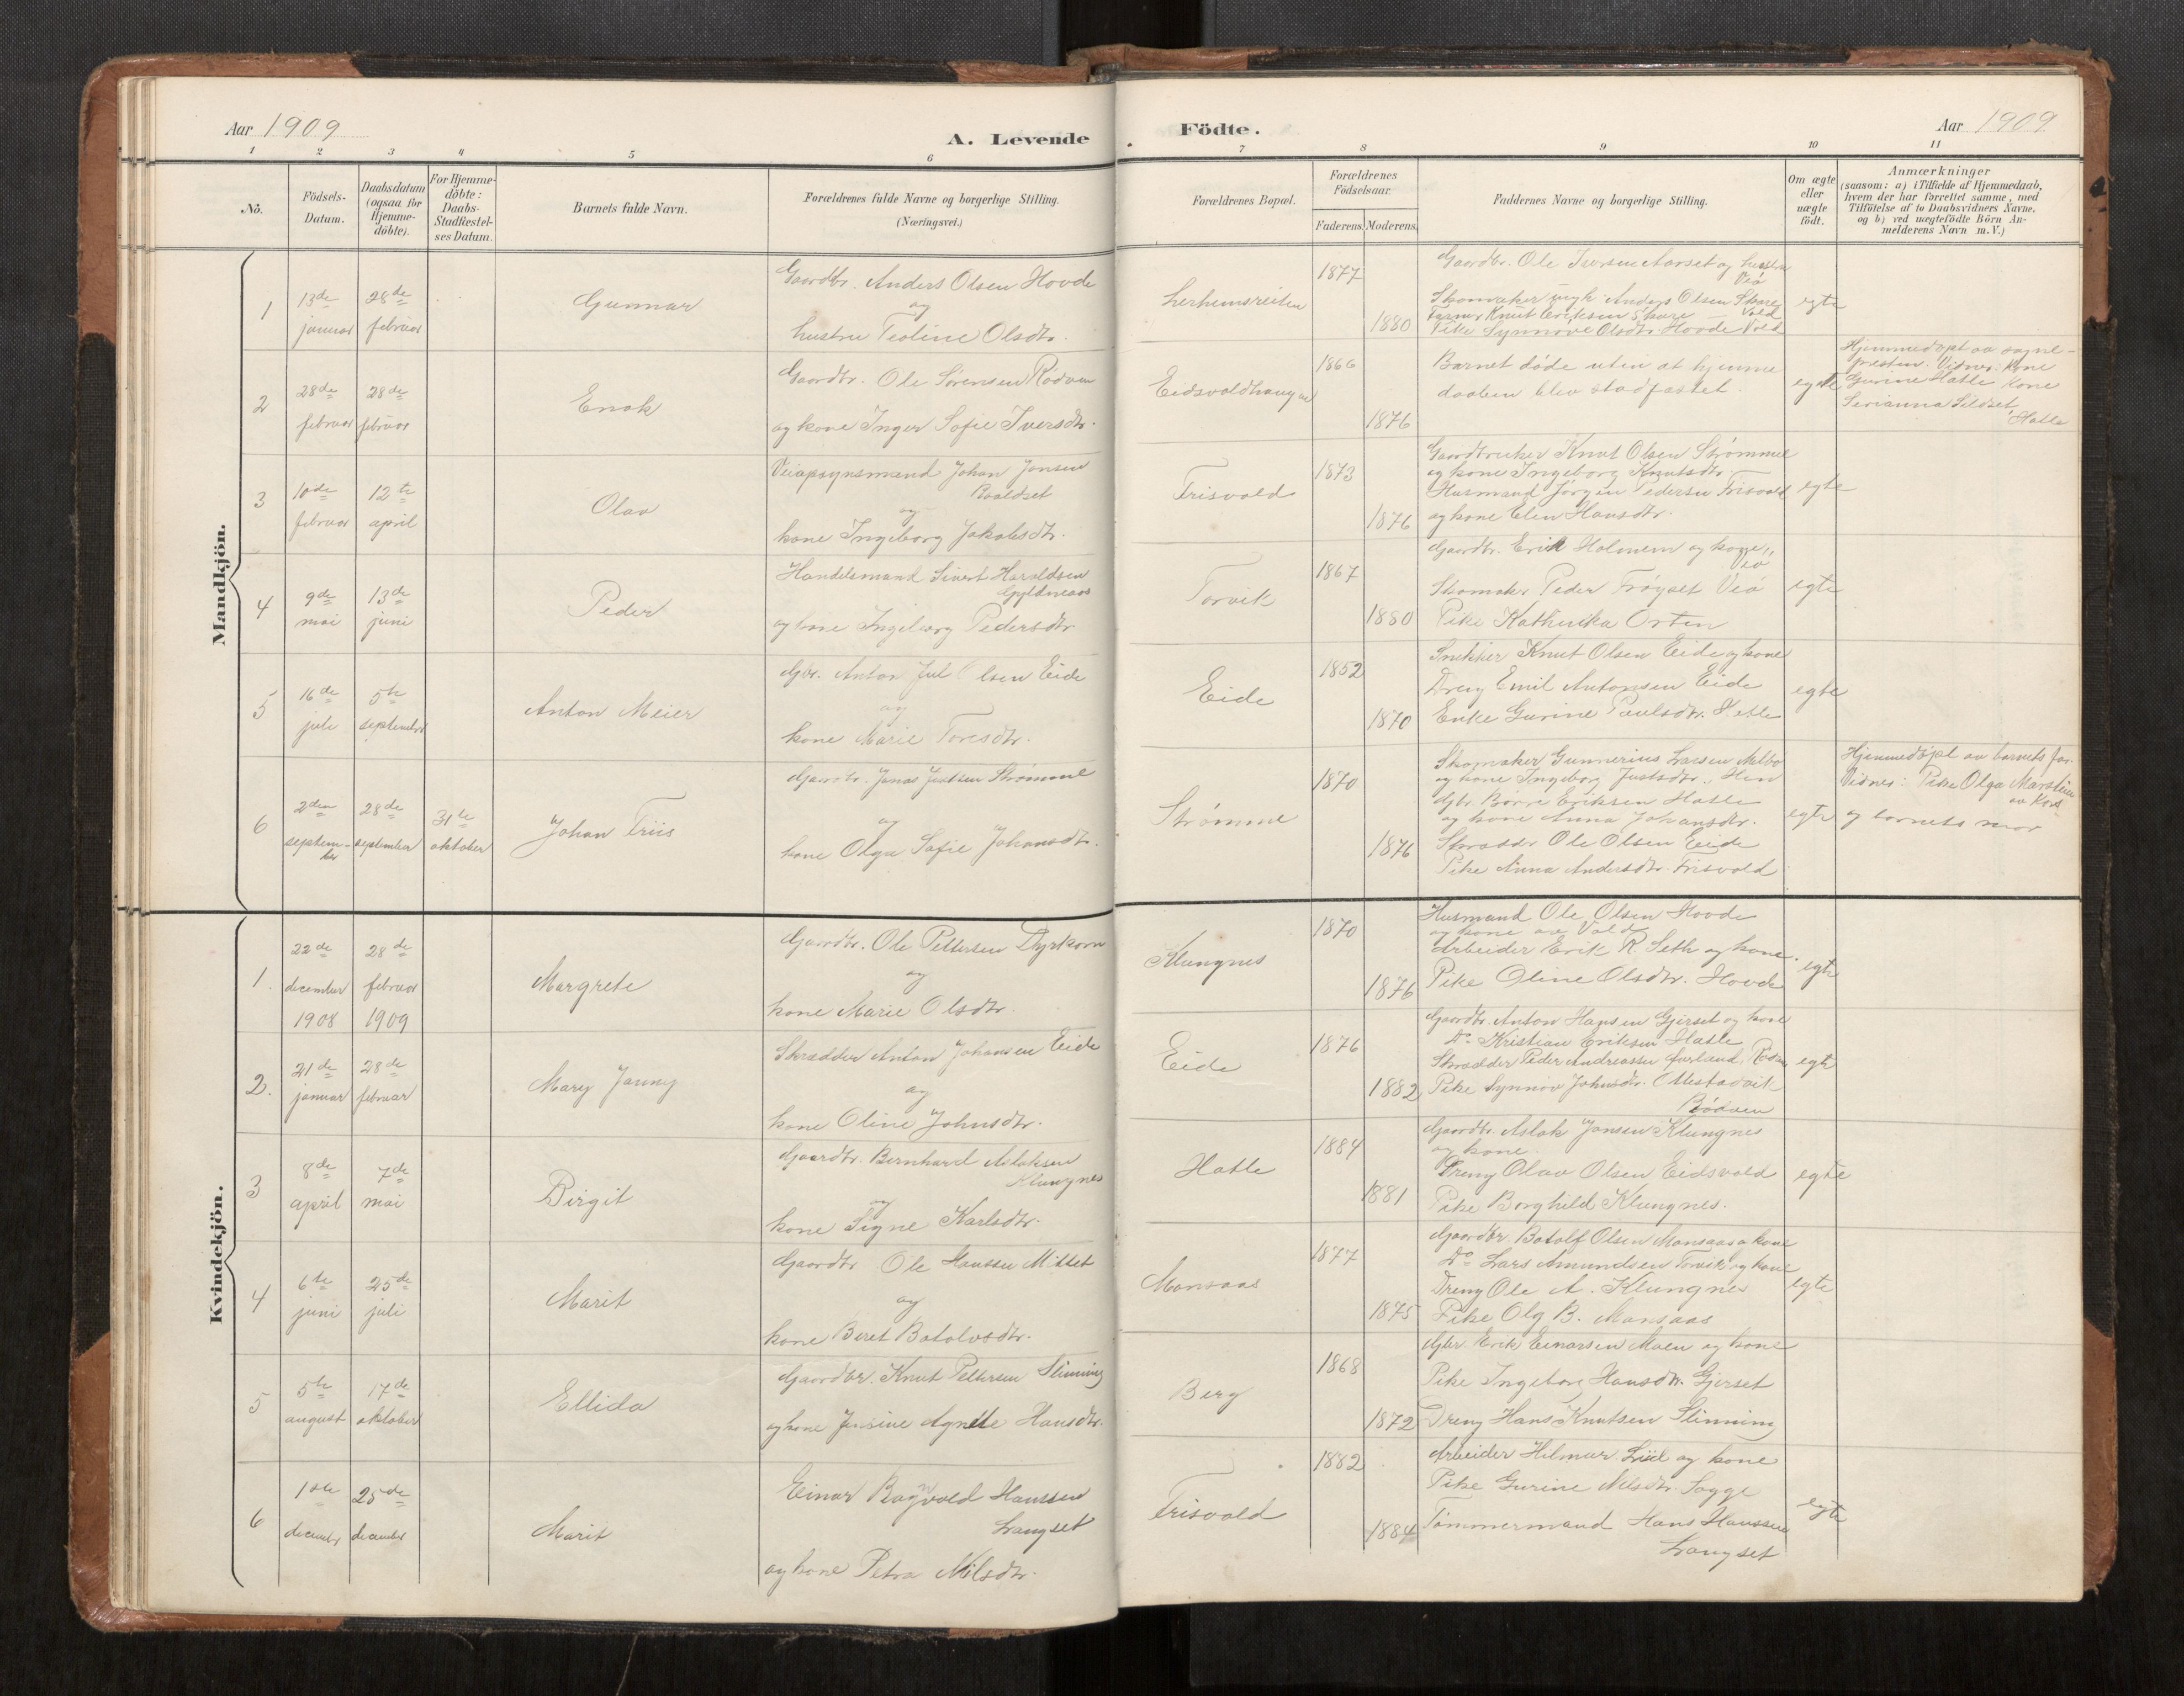 Aar 1909
A. Levende
Födte.
Aar 1909
1 2 3 4 5 6 7 8 9 10 11
No.
Födsels-Datum.
Daabsdatum (ogsaa for Hjemme-döbte).
For Hjemme-döbte: Daabs-Stadfestel-ses Datum.
Barnets fulde Navn.
Forældrenes fulde Navne og borgerlige Stilling. (Næringsvei.)
Forældrenes Bopæl.
Forældrenes Födselsaar.
Faderens. Moderens.
Faddernes Navne og borgerlige Stilling.
Om ægte eller uægte födt.
Anmærkninger
(saasom: a) i Tilfælde af Hjemmedaab,
hvem der har forrettet samme, med
Tilföielse af to Daabsvidners Navne,
og b) ved uægtefödte Börn An-
melderens Navn m. V.)
Mandkjön.
1 13de januar 28de februar Gunnar
Gaardbr. Anders Olsen Hovde
og
hustru Teoline Olsdtr.
1877
1880
Gaardbr. Ole Iversen Aarset og hustru
Veö
Skomaker Anders Olsen Skare
Knut Eriksen Skare Vold
Pike Synnøve Olsdtr. Hovde Vold
egte
2 28de februar 28de februar Enok
Gaardbr. Ole Sørensen Rødven
og kone Inger Sofie Iversdtr.
Eidsvoldhaugen
1866
1876
Barnet døde uten at hjemme
daaben blev stadfæstet.
egte
Hjemmedøpt av sogne-
presten. Vidner. Kone
Gurine Hatle kone
Serianna Sildset
Hatle
3 10de februar 12te april Olav
Veiopsynsmand Johan Jonsen
Roaldset
og
kone Ingeborg Jakobsdtr.
Frisvold
1873
1876
Gaardbruker Knut Olsen Strømme
og kone Ingeborg Knutsdtr.
Husmand Jørgen Pedersen Frisvold
og kone Elen Hansdtr.
egte
4 9de mai 13de juni Peder
Handelsmand Sivert Haraldsen
Gyldenaas
og kone Ingeborg Pedersdtr
Torvik
1867
1880
Gaardbr. Erik Holmem og kone
Veö
Skomaker Peder Frøyset Veö
Pike Kathinka Orten
egte
5 16de juli 5te september Anton Meier
Gbr. Anton Jul Olsen Eide
og
kone Marie Toresdtr.
Eide
1852
1870
Snekker Knut Olsen Eide og kone
Dreng Emil Antonsen Eide
Enke Gurine Paulsdtr. Hatle
egte
6 2den september 28de september 31te oktober Johan Friis
Gaardbr. Jonas Justsen Strømme
og
kone Olga Sofie Johansdtr.
Strømme
1870
1876
Skomaker Gunnerius Larsen Melbø
og kone Ingeborg Justsdtr. Hen
Gbr. Børre Eriksen Hatle
og kone Anna Johansdtr.
Skrædder Ole Olsen Eide
Pike Anna Andersdtr. Frisvold
egte
Hjemmedøpt av barnets far.
Vidner: Pike Olga Marstein
av Kors
og barnets mor
Kvindekjön.
1. 22de december 1908 28de februar 1909 Margrete
Gaardbr. Ole Pettersen Dyrkorn
og
kone Marie Olsdtr.
Klungnes
1870
1876
Husmand Ole Olsen Hovde
og kone av Vold
Arbeider Erik R. Seth og kone.
Pike Oline Olsdtr. Hovde
egte
2. 21de januar 28de februar Mary Jenny
Skrædder Anton Johansen Eide
og
kone Oline Johnsdtr.
Eide
1876
1882
Gaardbr. Anton Hansen Gjerset og kone
Do Kristian Eriksen Hatle
Skrædder Peder Andreassen Rødven
Pike Synnøv Johnsdtr. Mestadvik
Rødven
egte
3 8de april 7de mai Birgit
Gaardbr. Bernhard Aslaksen
Klungnes
og
kone Signe Karlsdtr.
Hatle
1884
1881
Gaardbr. Aslak Jonsen Klungnes
og kone
Dreng Olav Olsen Eidsvold
Pike Borghild Klungnes.
egte
4 6te juni 25de juli Marit
Gaardbr Ole Hanssen Mittet
og
kone Beret Botolvsdtr.
Monsaas
1877
1875
Gaardbr. Botolf Olsen Monsaas o kone
Do Lars Amundsen Torvik og kone
Dreng Ole A. Klungnes
Pike Olg B. Monsaas
egte
5 5te august 17de oktober Ellida
Gaardbr. Knut Pettersen Slinning
og kone Jensine Agnete Hansdtr.
Berg
1868
1872
Gbr. Erik Einarsen Moen og kone
Pike Ingeborg Hansdtr. Gjerset
Dreng Hans Knutsen Slinning
6 1ste december 25de december Marit
Einar Ragnvald Hanssen
Langset
og kone Petra Nilsdtr.
Frisvold
1882
1884
Arbeider Hilmar og kone
Pike Gurine Nilsdtr. Sogge
Tømmermand Hans Hanssen
Langset
egte